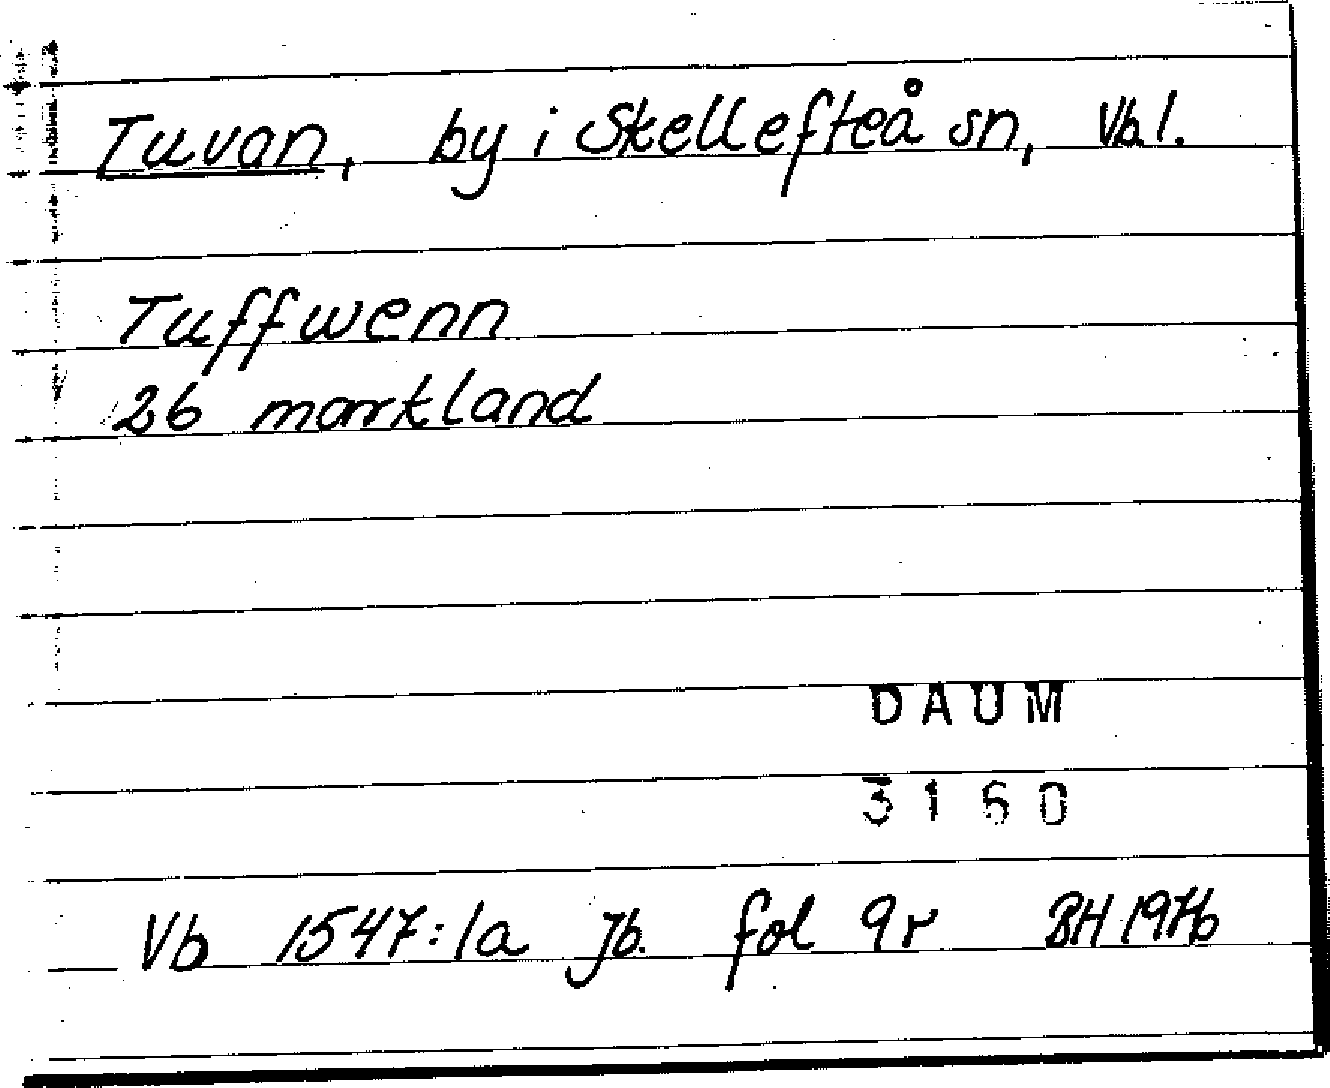 Tuvan, by i Skellefteå sn, Vbl.
Tuffwenn
26 markland
DAUM
3160
Vb 1547:1a Jb. fol 9r BH 1976